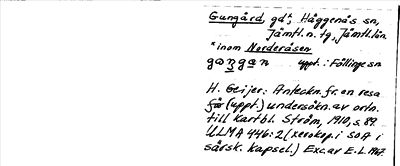 Gungård, gd. Häggenås sn,
Jämtl. n. tg, Jämtl. län.
*inom Norderåsen
gaŋgaṇ uppt.: Föllinge sn
H. Geijer: Anteckn. fr. en resa
för (uppt.) undersökn. av ortn.
till kartbl. Ström, 1910, s. 89.
ULMA 446:2 (xerokop. i SOA i
särsk. kapsel.) Exc. av E.L. 1967.